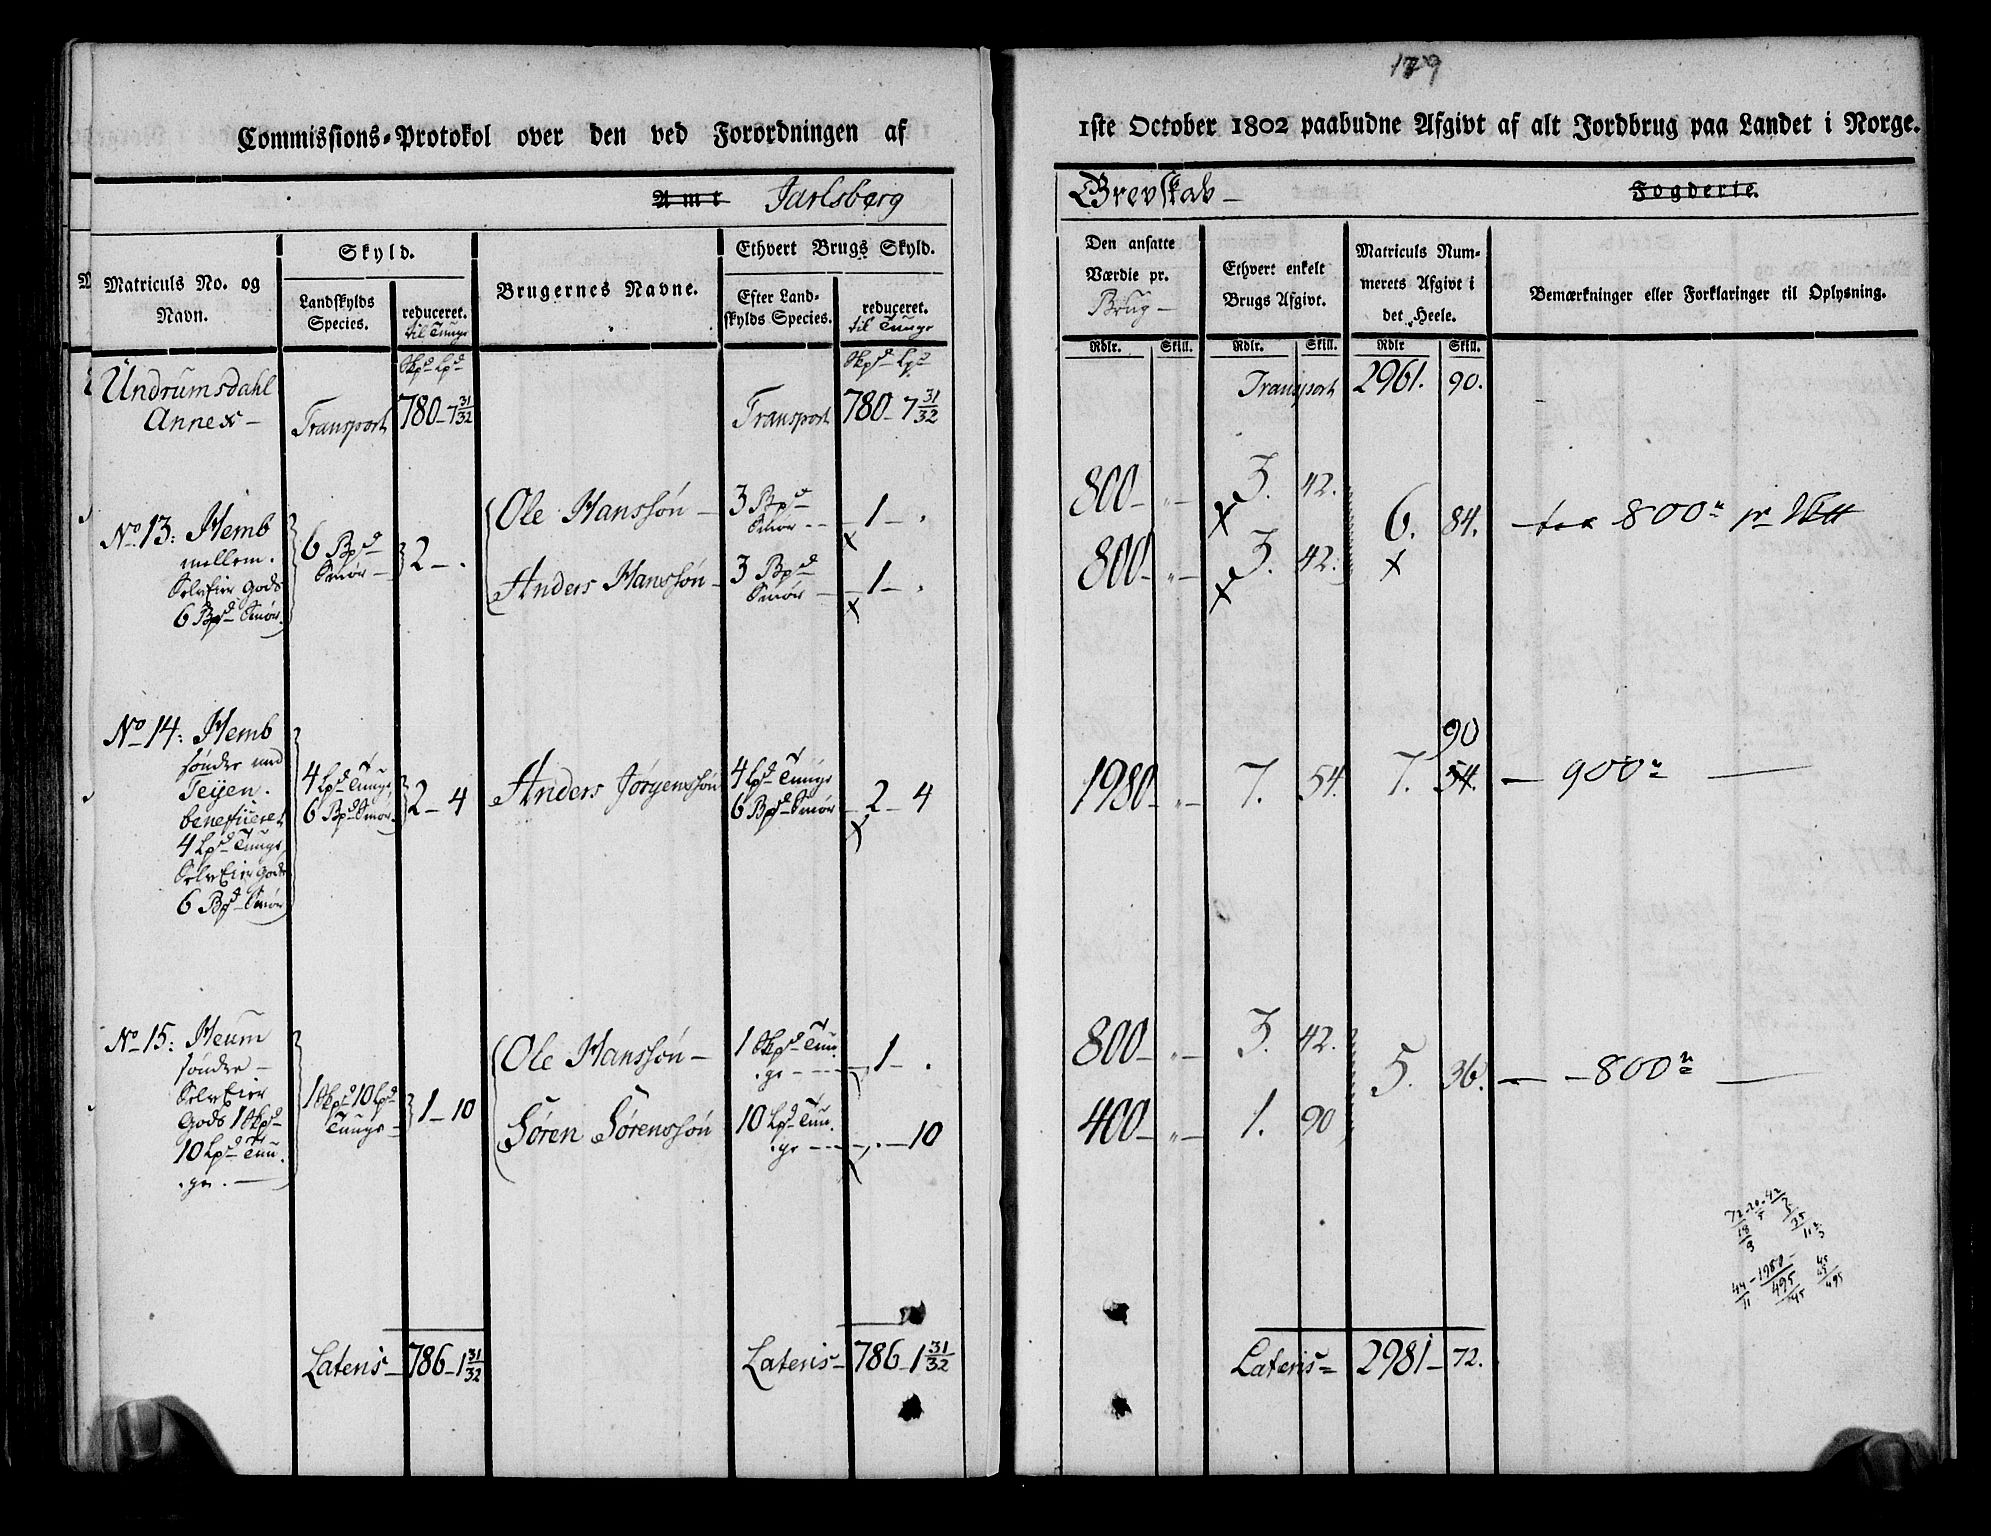 179
Commissions-Protokol over den ved Forordningen af
1ste October 1802 paabudne Afgivt af alt Jordbrug paa Landet i Norge.
Amt Jarlsberg
Grevskab – Fogderie.
Matriculs No. og Navn.
Skyld.
Landskylds Species.
reduceret.
til Tunge
Brugernes Navne.
Ethvert Brugs Skyld.
Efter Landskylds Species.
reduceret.
til Tunge
Den ansatte Værdie pr.
Brug –
Ethvert enkelt Brugs Afgivt.
Matriculs Nummerets Afgivt i det Heele.
Bemærkninger eller Forklaringer til Oplysning.
Skpd Lpd
Skpd Lpd
Rdlr. Skill. Rdlr. Skill. Rdlr Skill.
Undrumsdahl
Annex –
Transport 780 – 7 31/32
Transport 780 – 7 31/32
Transport 2961. 90.
No 13: Hemb
mellem.
SelvEier Gods
6 Bpd Smør.
6 Bpd
Smør – 2 – .
Ole Hanssøn – 3 Bpd
Smør – – 1 – .
800 – „ – 3. 42.
Anders Hanssøn – 3 Bpd
Smør – 1 – .
800 – „ – 3. 42.
6. 84. 800
No 14: Hemb
søndre med
Teijen.
beneficeret
4 Lpd Tunge
SelvEier Gods
6 Bpd Smør
4 Lpd Tunge
6 Bpd Smør. 2 – 4
Anders Jørgenssøn
4 Lpd Tunge
6 Bpd Smør – 2 – 4
1980 – „ – 7. 54. 7. 54.
90
– 900 –
No 15: Heum
søndre –
SelvEier
Gods 1 Skpd
10 Lpd Tun-
ge. –
1 Skpd 10 Lpd
Tunge – 1 – 10
Ole Hanssøn – 1 Skpd Tun-
ge – – – 1 – .
800 – „ – 3. 42.
Søren Sørenssøn 10 Lpd Tun-
ge – – – . – 10
400 – „ – 1. 90
5. 36. – – 800 –
72 - 20 - 42
18 5
44 - 1980 -
11 495
45
495
Lateris – 786 – 1 31/32
Lateris – 786 – 1 31/32
Lateris = 2981 – 72.